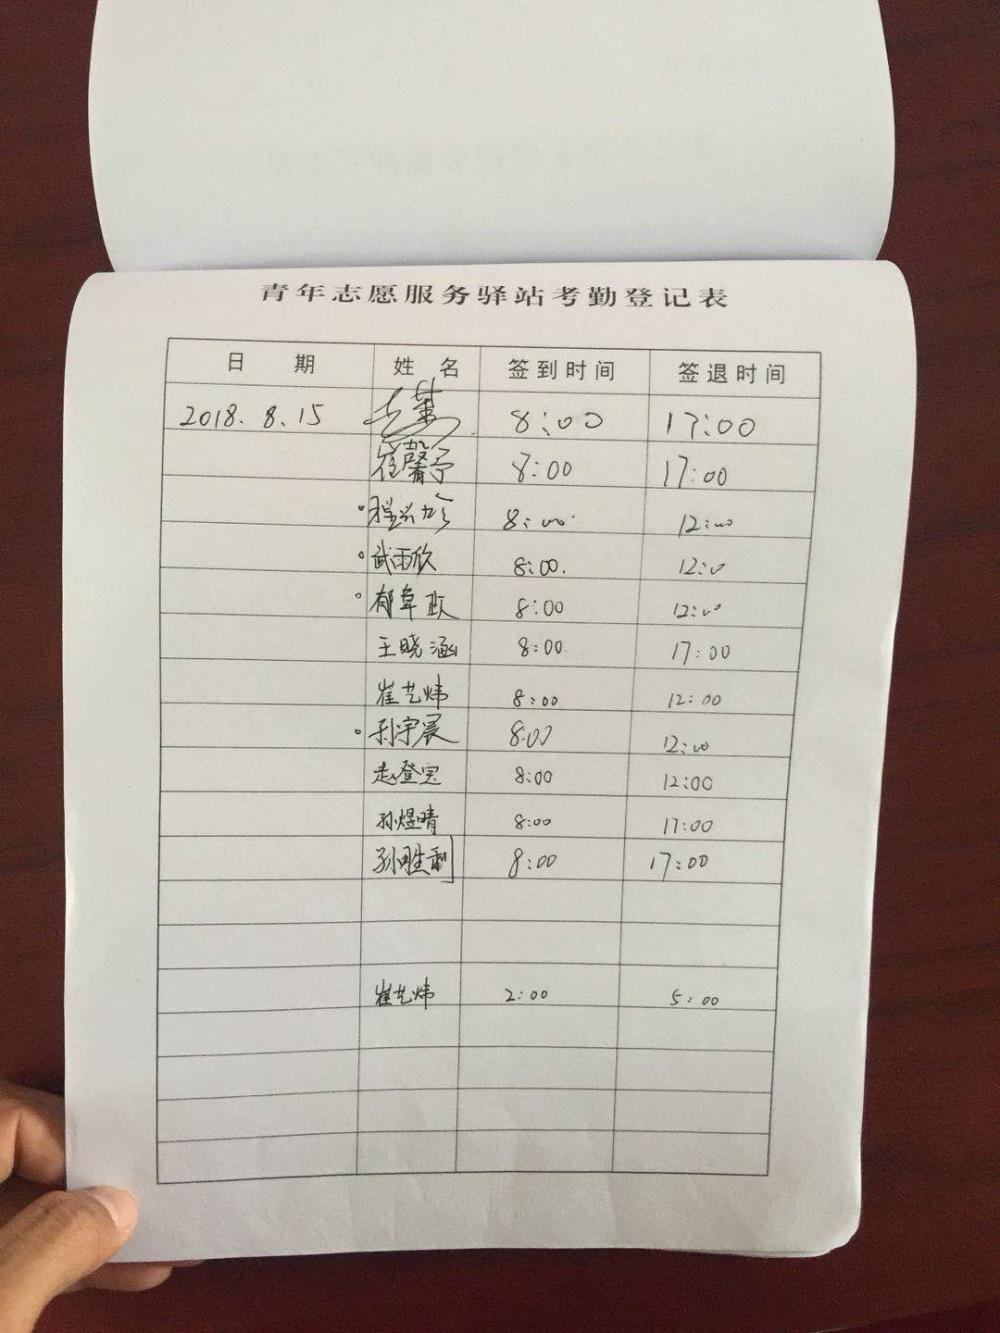 青年志愿服务驿站考勤登记表
日 期 姓 名 签到时间 签退时间
2018.8.15 8:00 17:00
崔馨予 8:00 17:00
8:00 12:00
武雨欣 8:00. 12:00
郁阜政 8:00 12:00
王晓涵 8:00 17:00
崔艺炜 8:00 12:00
孙宇晨 8:00 12:00
赵登宝 8:00 12:00
孙煜晴 8:00 17:00
孙胜利 8:00 17:00
崔艺炜 2:00 5:00